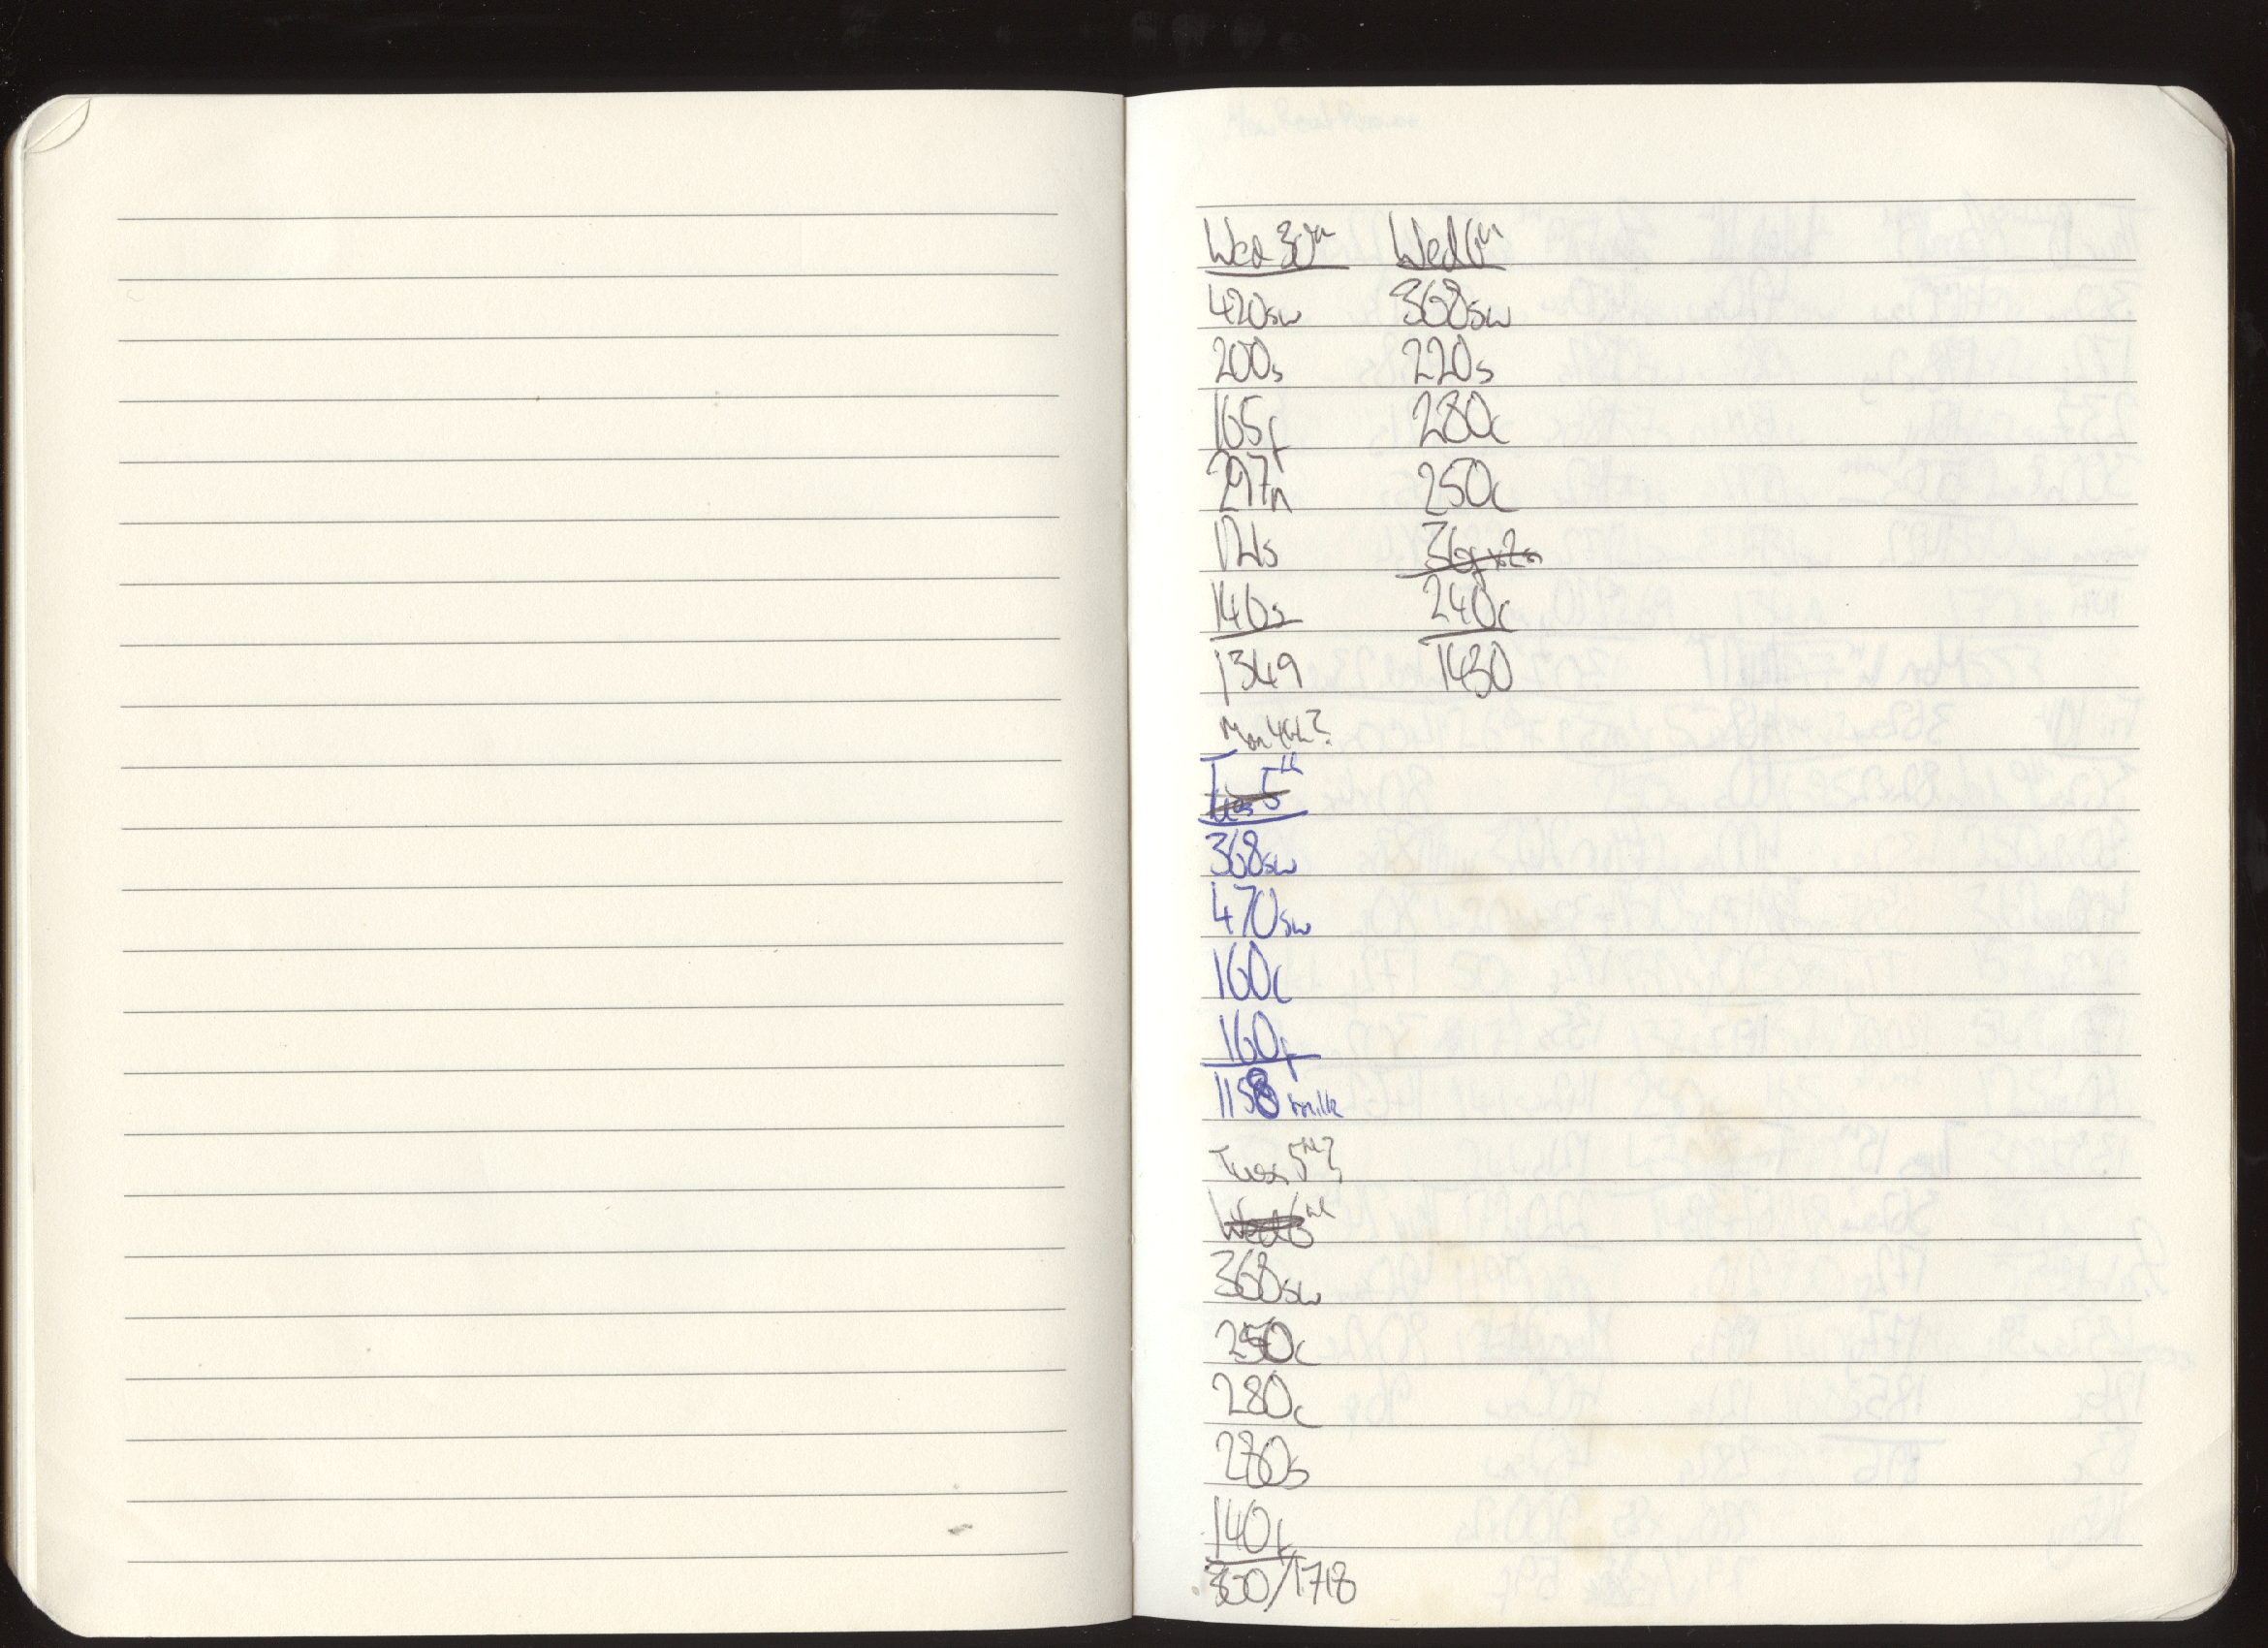 Wed 30th
420sw
200s
165f
297n
121s
146s
1349
Wed 6th
368sw
220s
280c
250c
240c
1430
Mon 4th?
Tues 5th
368sw
470sw
160c
160f
1158 milk
Tues 5th?
Wed 6th
368sw
250c
280c
280s
140f
300/1718